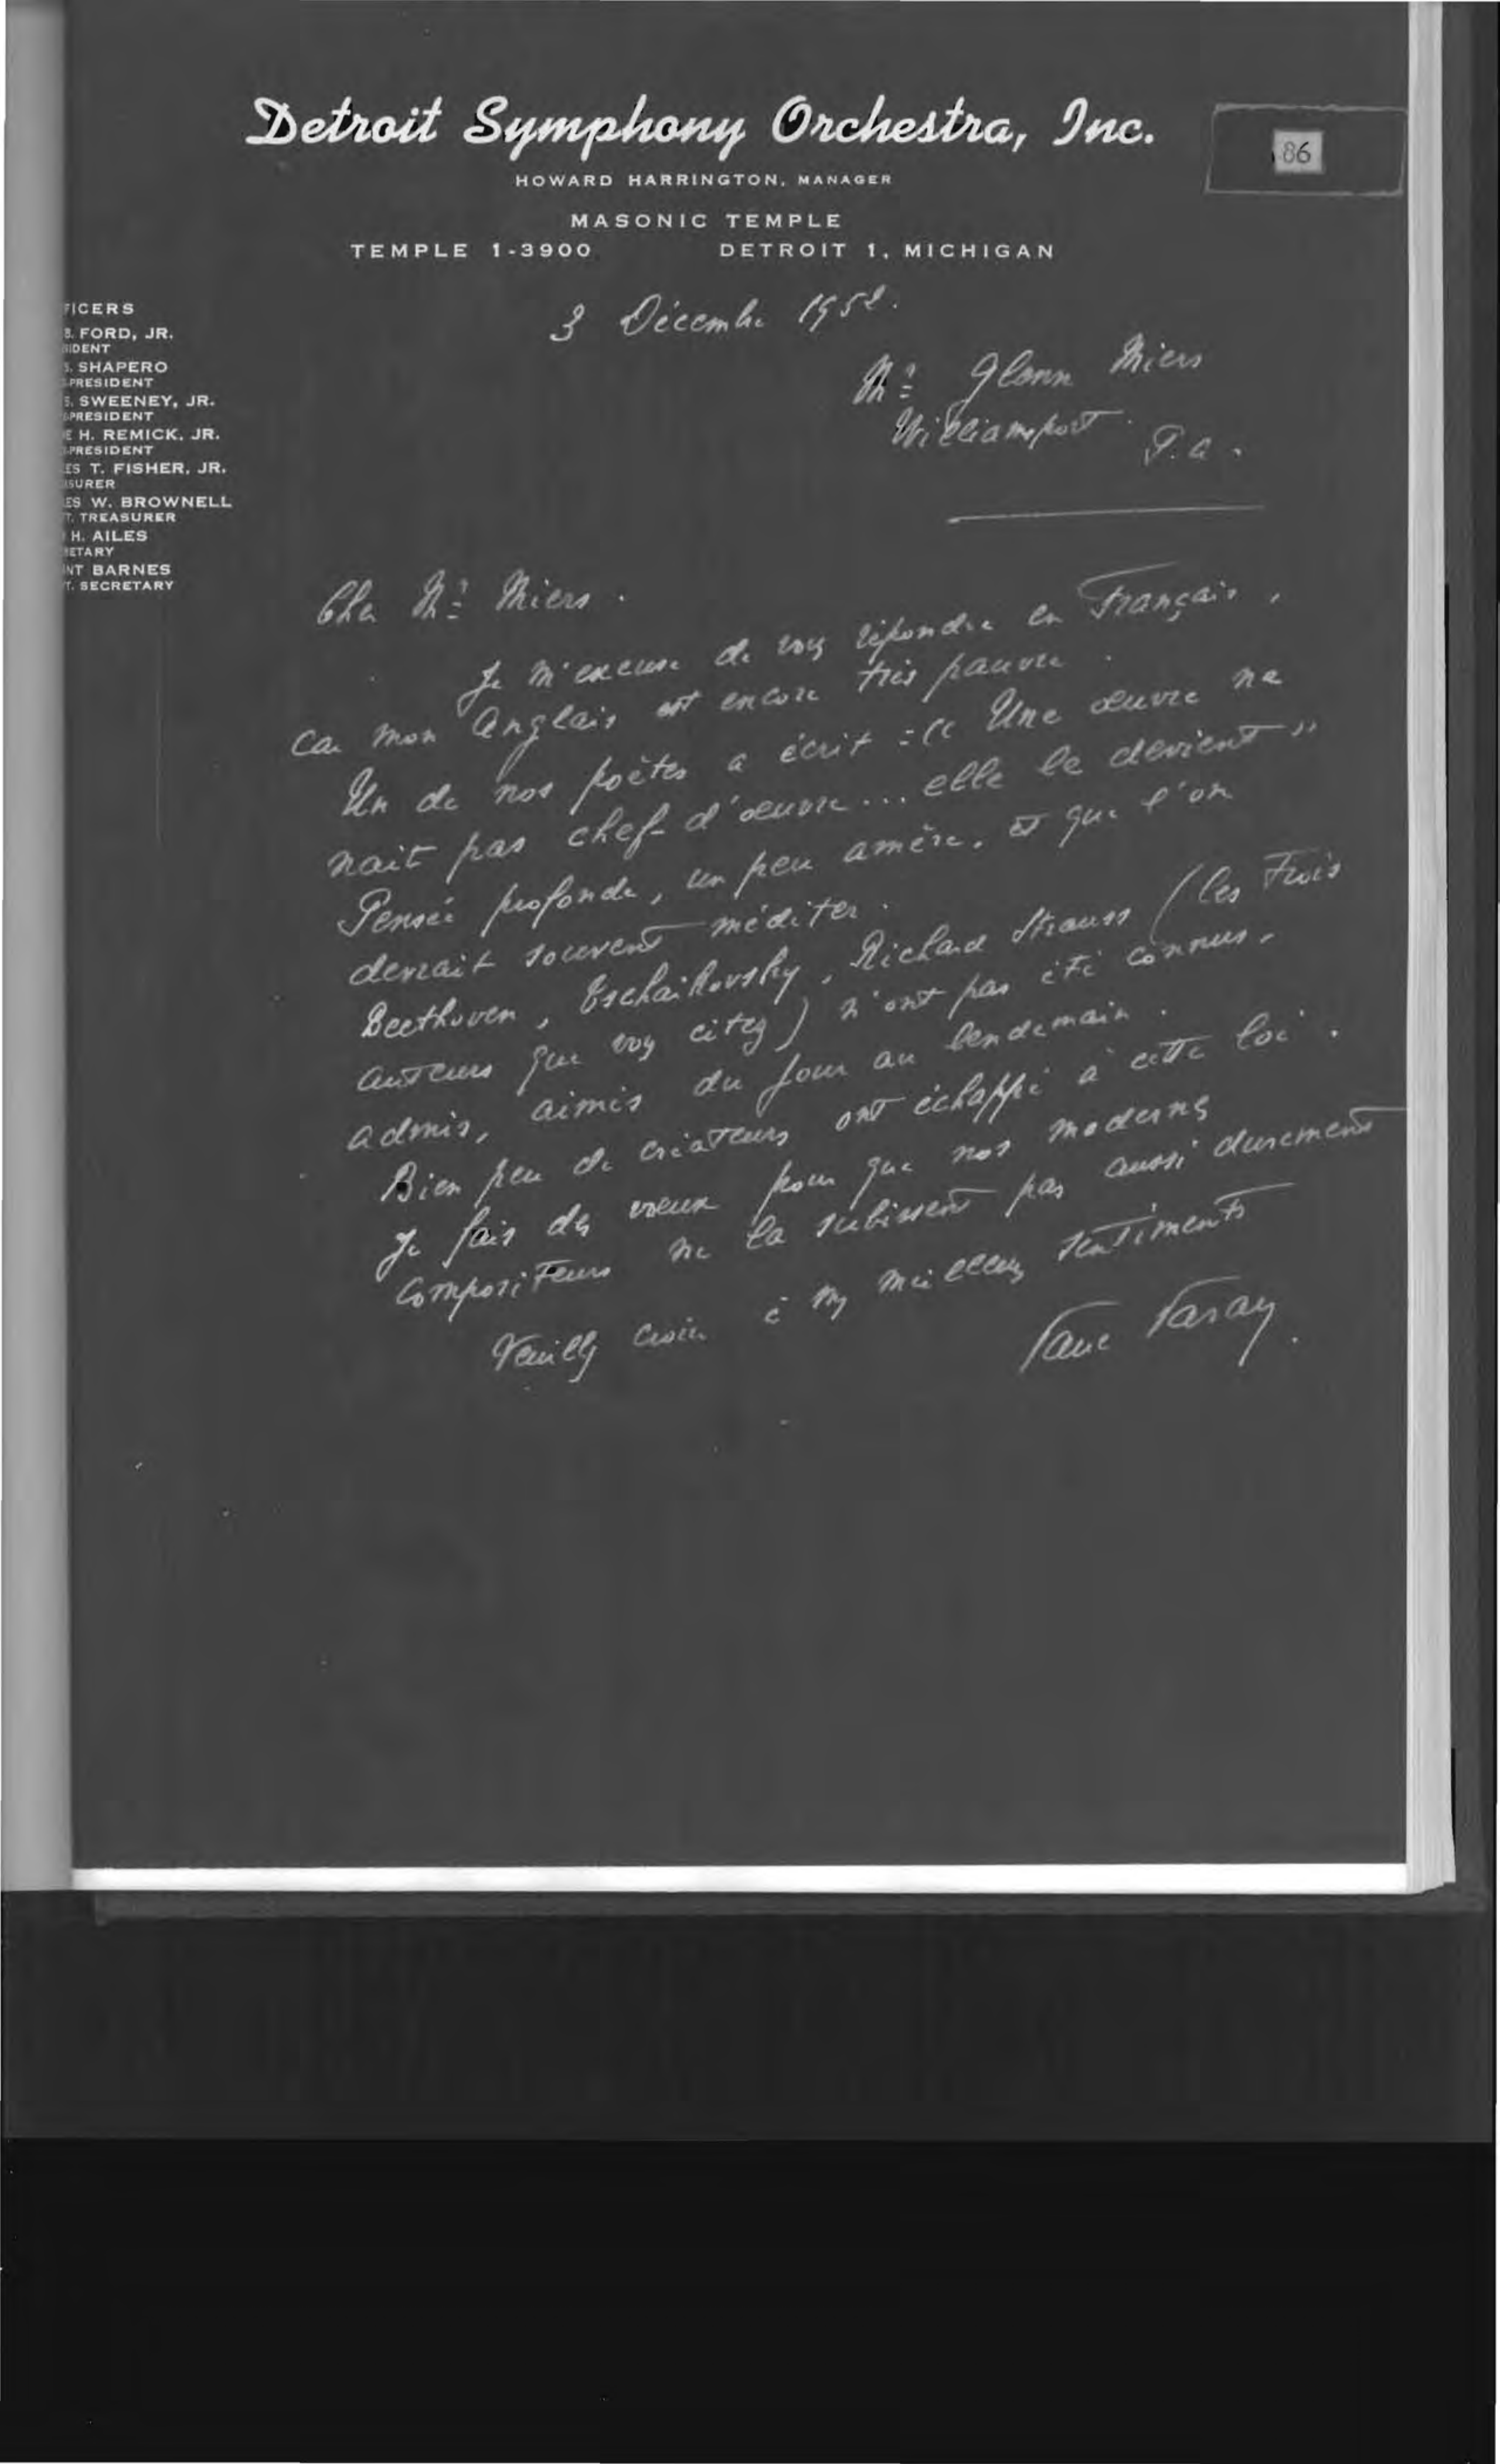 Detroit Symphony Orchestra, Inc.
86
HOWARD HARRINGTON, MANAGER
MASONIC TEMPLE
TEMPLE 1-3900 DETROIT 1, MICHIGAN
FICERS
B. FORD, JR.
SIDENT
S. SHAPERO
-PRESIDENT
S. SWEENEY, JR.
-PRESIDENT
E H. REMICK, JR.
-PRESIDENT
LES T. FISHER, JR.
ASURER
LES W. BROWNELL
T. TREASURER
H. AILES
RETARY
NT BARNES
T. SECRETARY
3 Décembre 1952.
Mr Glenn Miers
Williamsport.
P.a.
Cher Mr Miers.
Je m'excuse de vous répondre en Français,
car mon Anglais est encore très pauvre.
Un de nos poètes a écrit : « Une œuvre ne
nait pas chef-d'œuvre... elle le devient »
Pensée profonde, un peu amère, et que l'on
devrait souvent méditer.
Beethoven, Tschaikovsky, Richard Strauss (les trois
auteurs que vous citez) n'ont pas été connus,
admis, aimés du jour au lendemain.
Bien peu de créateurs ont échappé à cette loi.
Je fais des vœux pour que nos modernes
compositeurs ne la subissent pas aussi durement
Veuillez croire à mes meilleurs sentiments
Paul Paray.